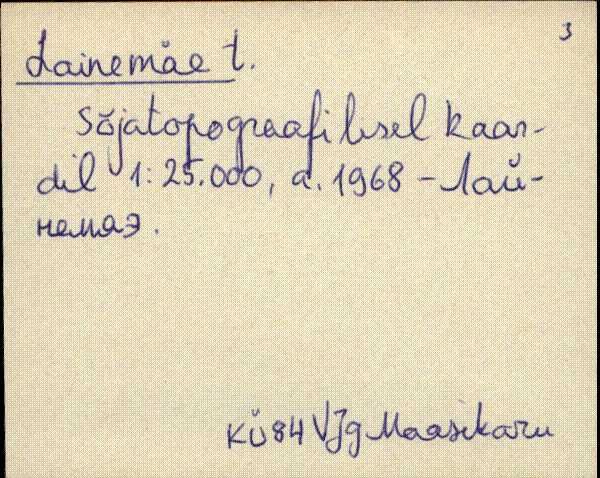 3
Lainemäe t.
Sõjatopograafilisel kaar-
dil 1:25.000, a. 1968 – Лай-
немяэ.
KÜ84 VJg Maasikaru